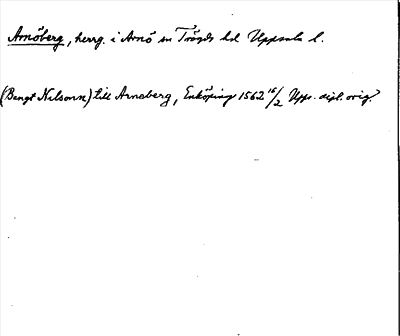 Arnöberg, herrg. i Arnö sn Trögds hd Uppsala l.
(Bengt Nilsonn) till Arneberg, Enköping 1562 15/2 Upps. dipl. orig.